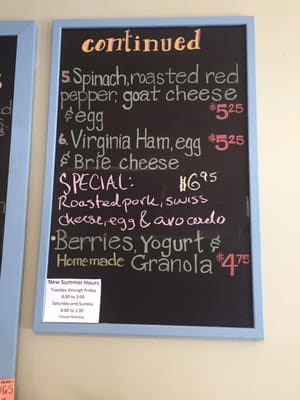 continued
5. Spinach, roasted red
pepper, goat cheese
& egg $5.25
6. Virginia Ham, egg $5.25
& Brie cheese
SPECIAL: $6.95
Roasted pork, swiss
cheese, egg & avocado
Berries, Yogurt &
Homemade Granola $4.75
New Summer Hours
Tuesday through Friday
6:00 to 3:00
Saturday and Sunday
8:00 to 1:00
Closed Monday